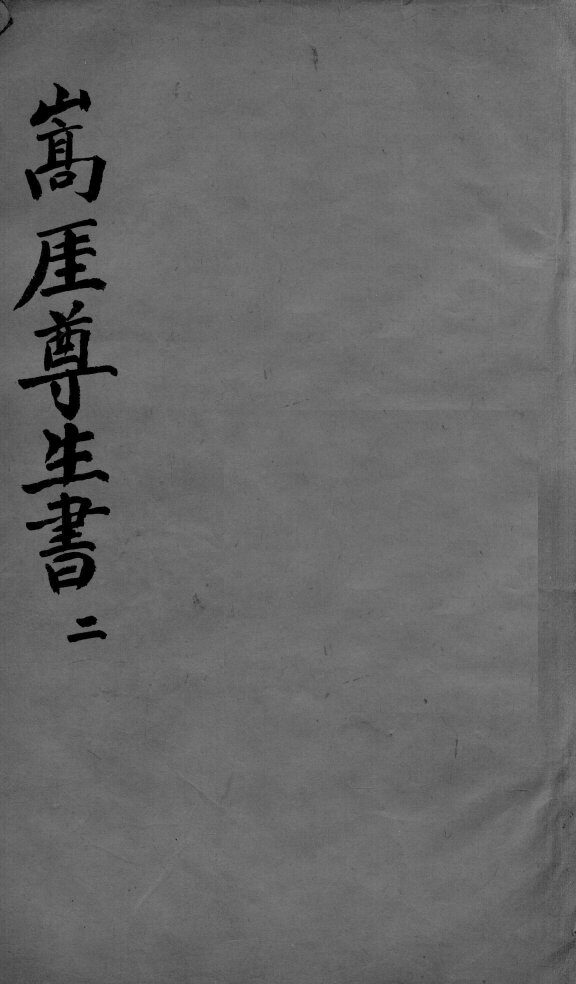 嵩厓尊生書二